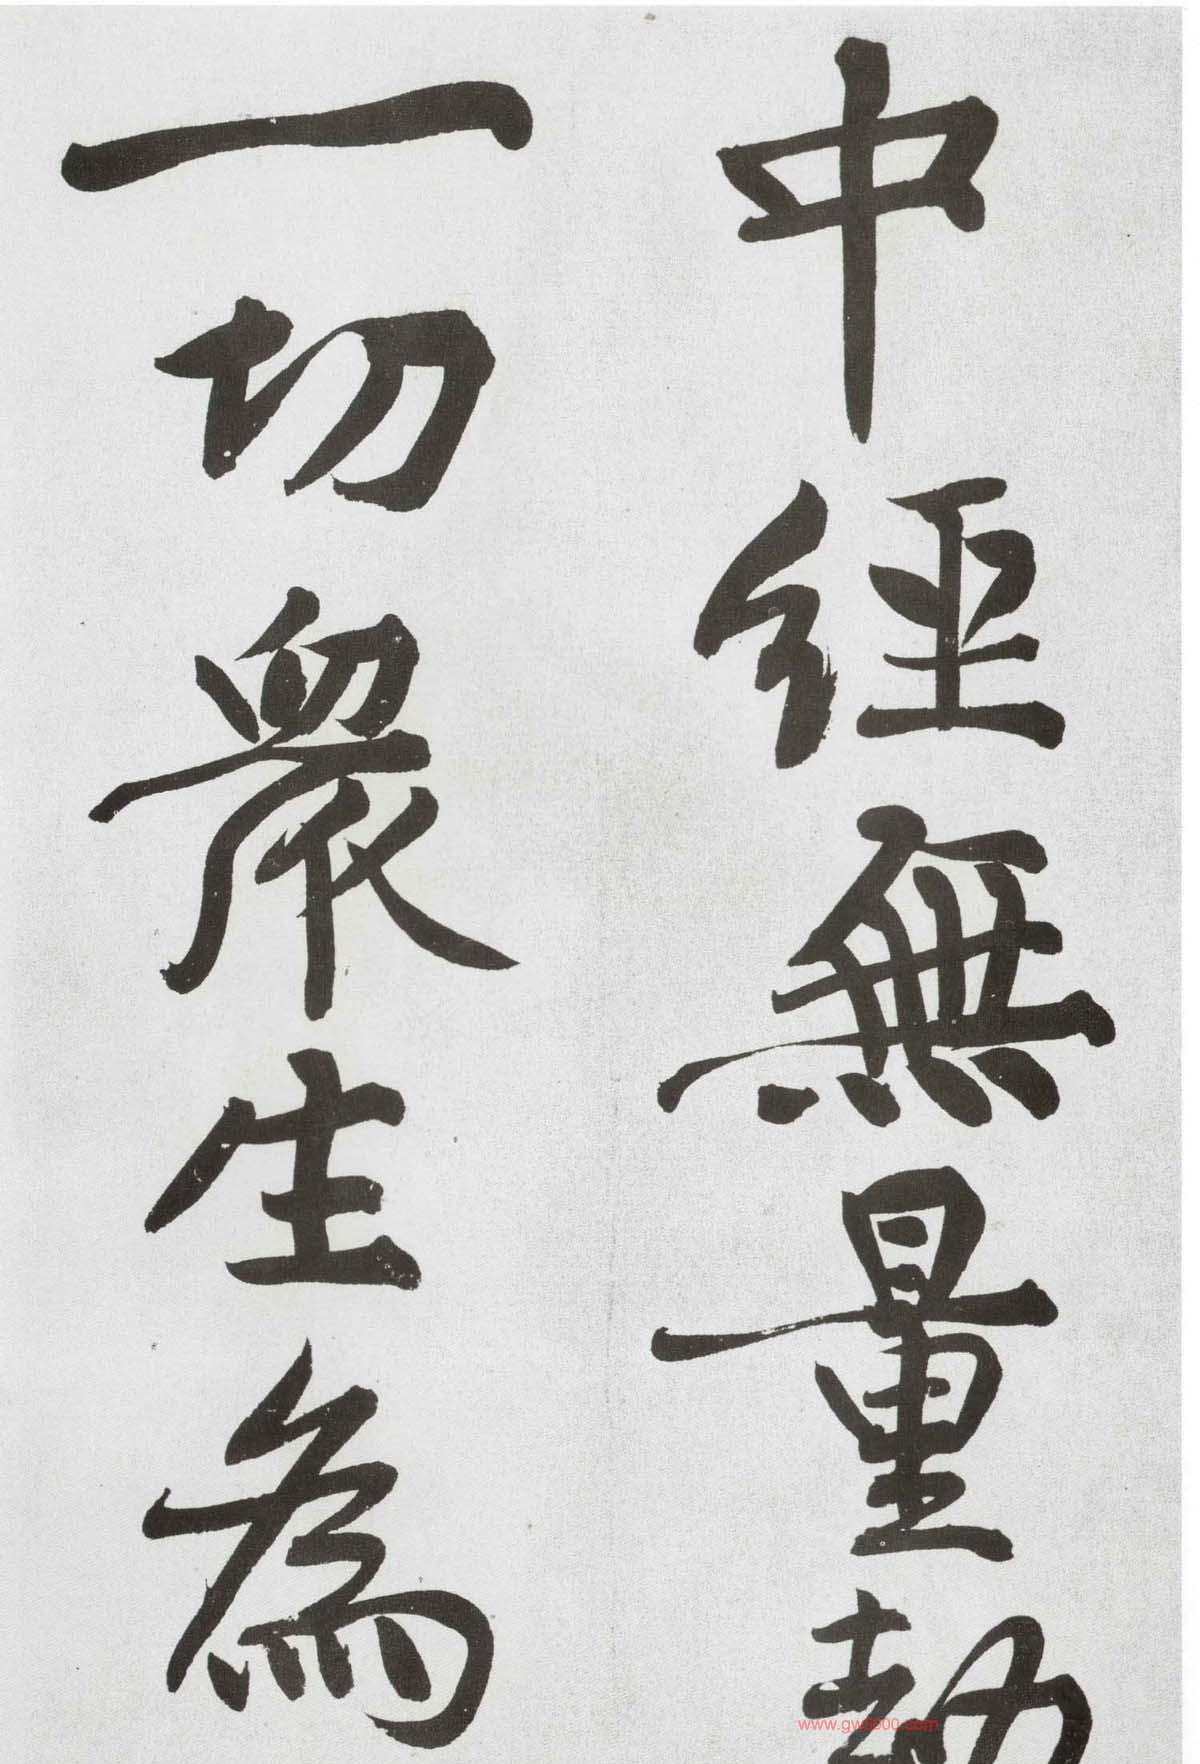 中經無量劫
一切衆生為
www.gw1000.com